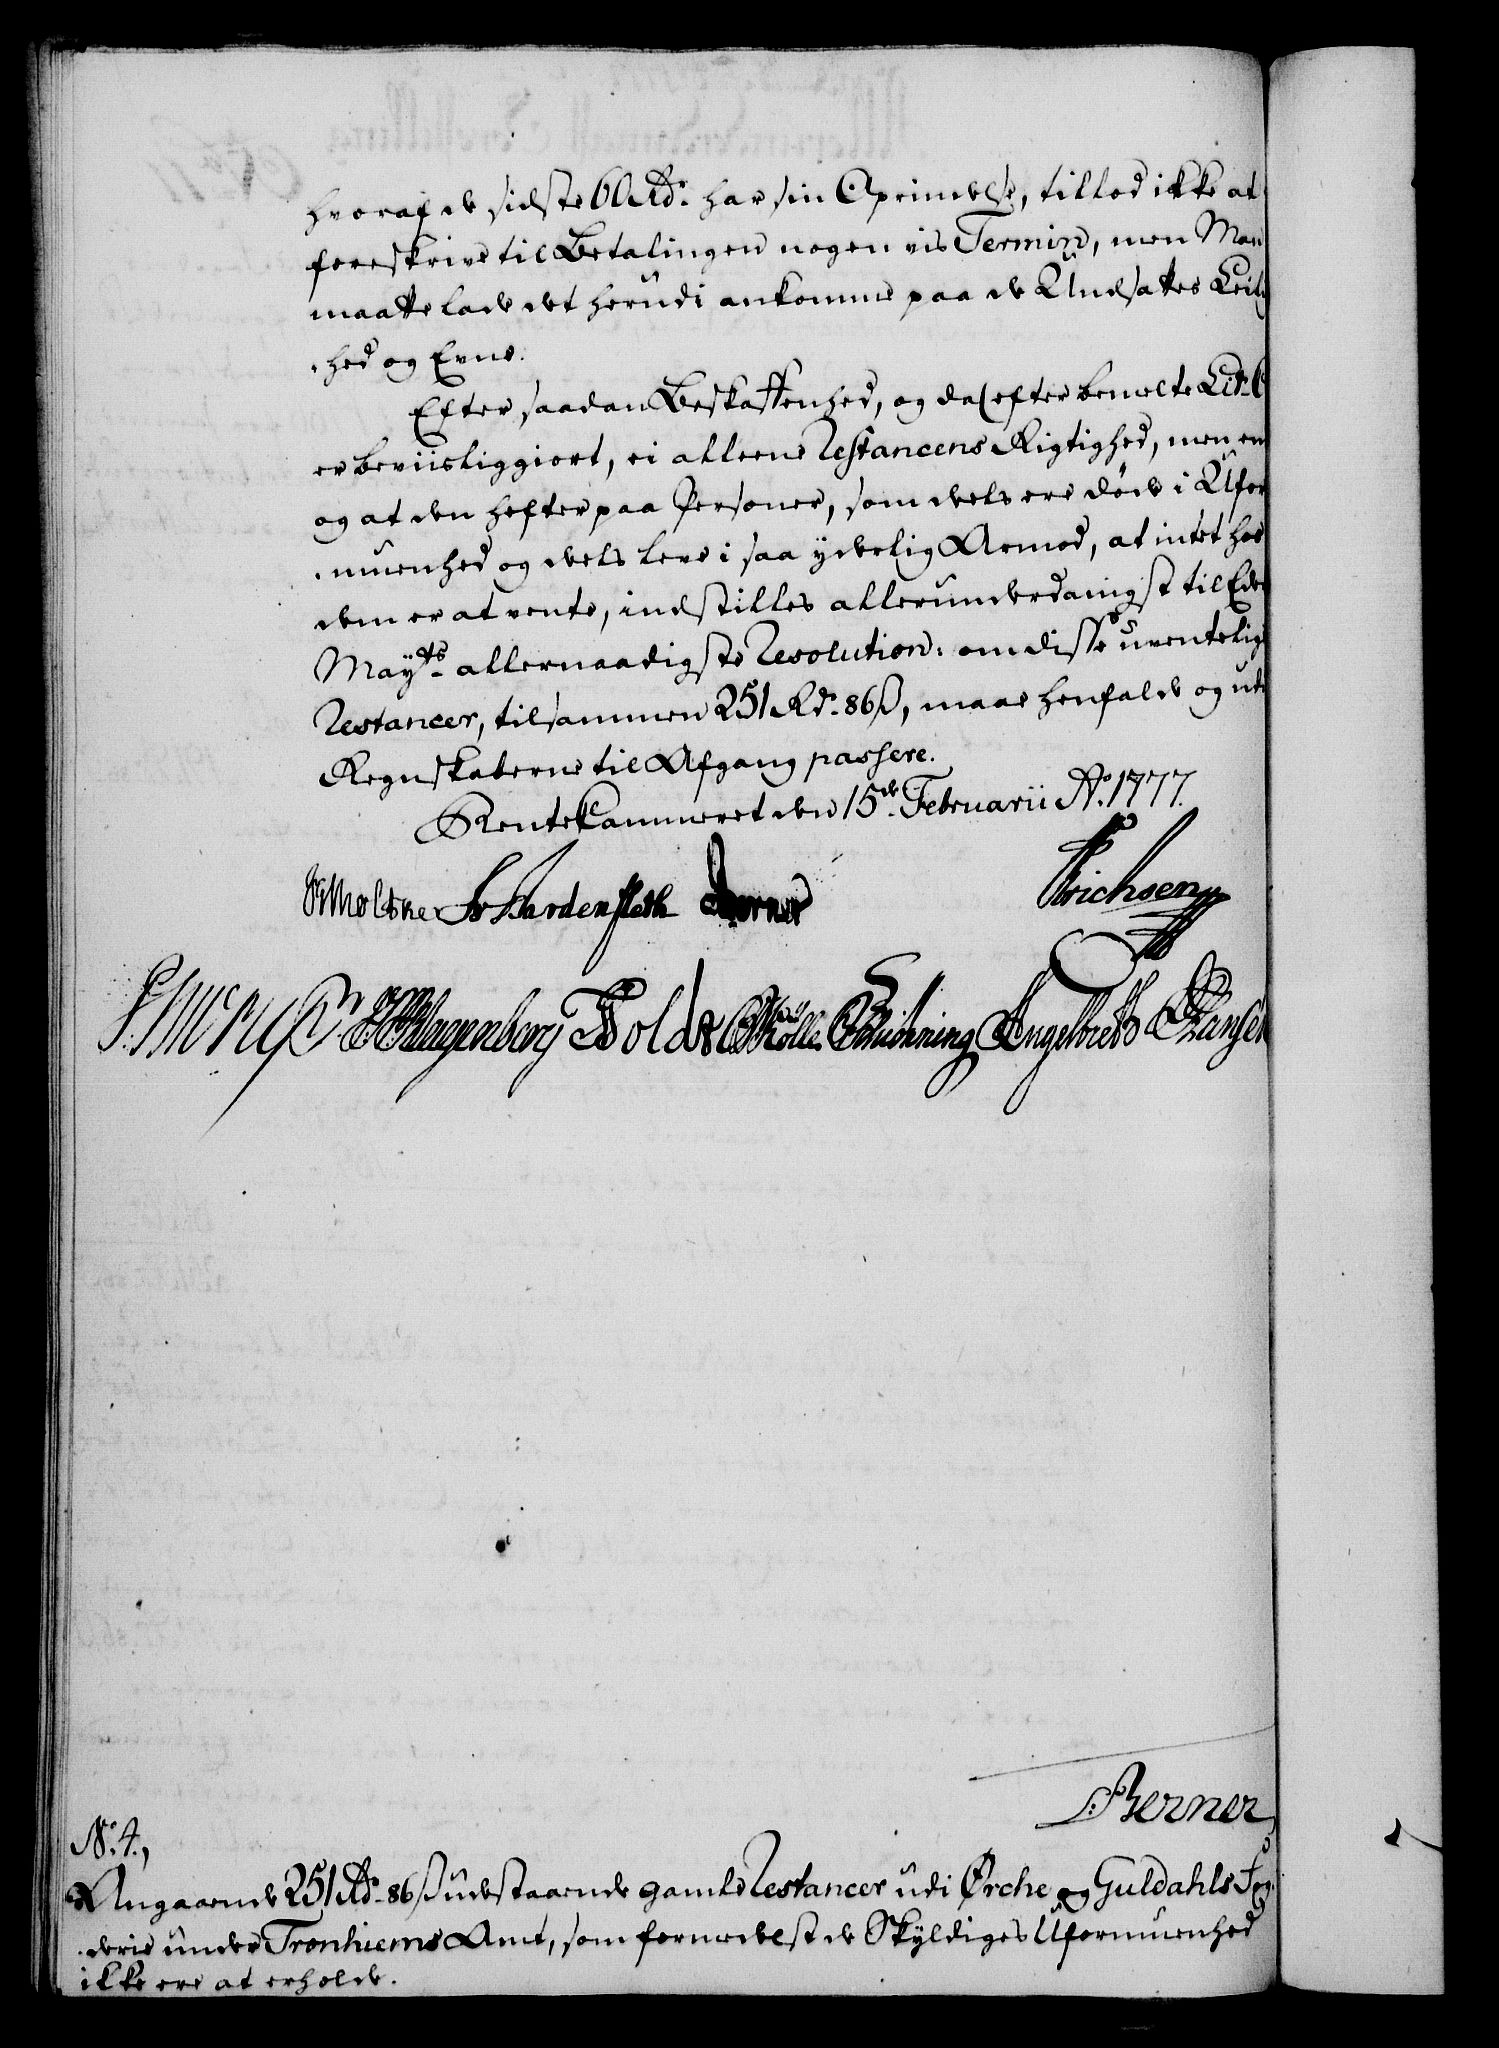 hvoraf de sidste 60 Rd. har sin Oprindelse, tillod ikke at
foreskrive til Betalingen nogen vis Termin, men Man
maatte lade det herudi ankomme paa de Undsattes Leilig
-hed og Evne.
Efter saadan Beskaffenhed, og da efter bemelte Litr. C
er beviisliggiort, ei alleene Restancens Rigtighed, men en
og at den hefter paa Personer, som deels ere døde i Ufor
-muenhed og deels leve i saa ydelig Armod, at intet hos
dem er at vente, indstilles allerunderdanigst til Eders
Mayts. allernaadigste Resolution: om disse uventelige
Restancer, tilsammen 251 Rd. 86 ß, maae henfalde og udi
Regnskaberne til Afgang passere.
Rentekammeret den 15de Februarii Ao. 1777.
Moltke Hardenfleth Berner Erichsen
Klagenberg Holde Müller Engelbreth Hansen
Berner
No. 4.,
Angaaende 251 Rd. 86 ß udestaaende gamle Restancer udi Ørche og Guldahls Fog
-derie under Tronhiems Amt, som formedelst de Skyldiges Uformuenhed
ikke ere at erholde.